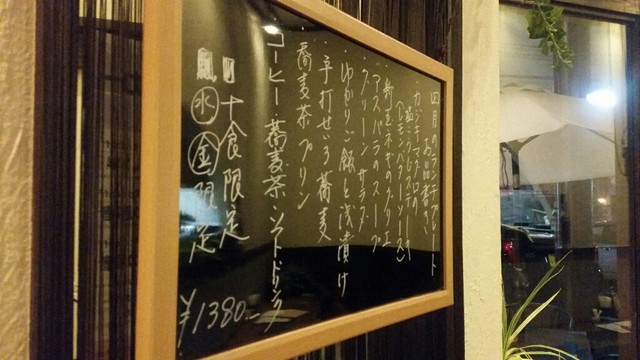 四月のランチプレート
お品書き
カジキマグロの
塩こうじステーキ
(レモンバターソース)
新玉ネギのグリエ
アスパラのスープ
グリーンサラダ
ゆかりご飯と浅漬け
手打せいろ蕎麦
蕎麦茶プリン
コーヒー 蕎麦茶 ソフトドリンク
十食限定
水 金 限定
¥1380-